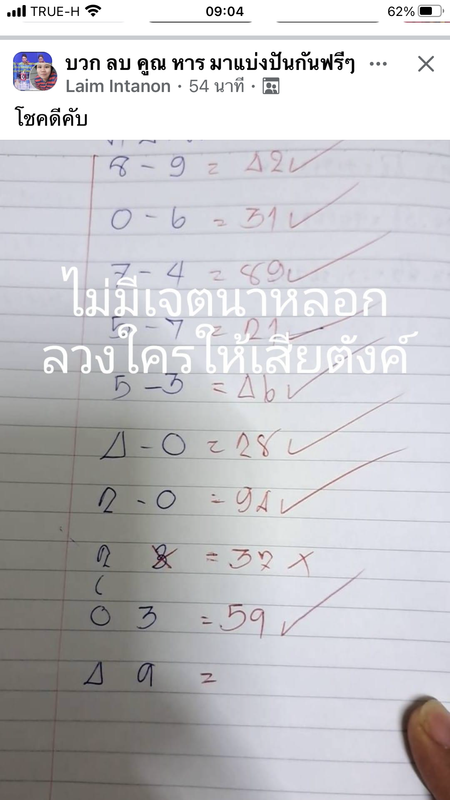 TRUE-H 09:04 62%
บวก ลบ คูณ หาร มาแบ่งปันกันฟรีๆ
Laim Intanon · 54 นาที ·
โชคดีคับ
8 - 9 = 42
0 - 6 = 31
7 - 4 = 89
ไม่มีเจตนาหลอก
5 - 7 = 21
ลวงใครให้เสียตังค์
5 - 3 = 46
4 - 0 = 28
2 - 0 = 94
2 = 37 ×
0 3 = 59
4 9 =